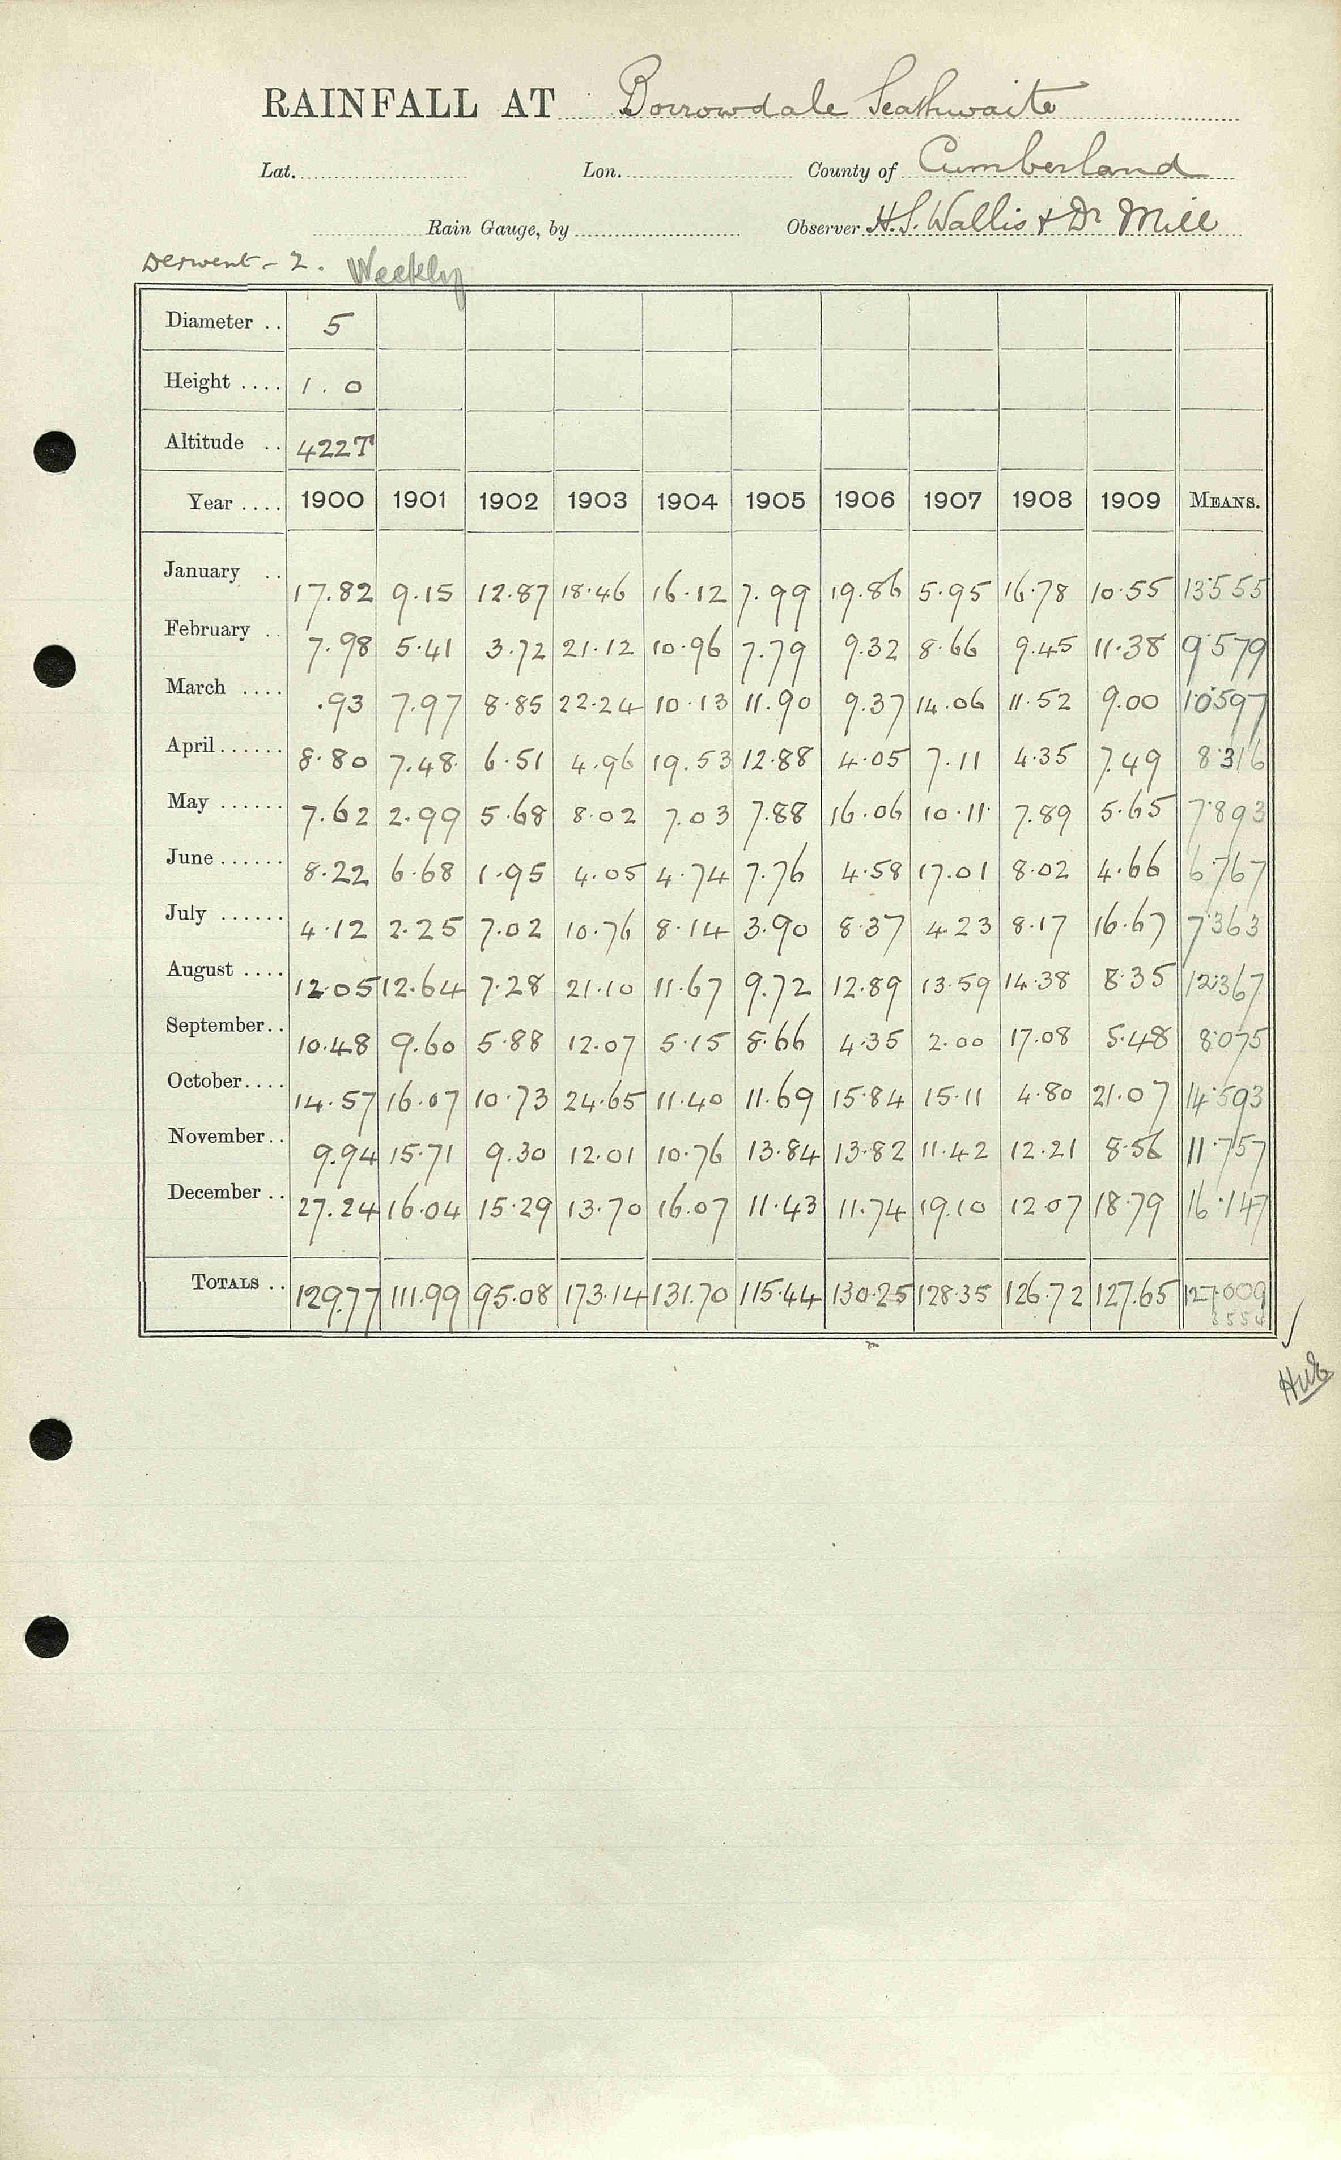 RAINFALL AT Borrowdale Seathwaite
Lat. Lon. County of Cumberland
Rain Gauge, by Observer H.S. Wallis & Dr Mill
Derwent - 2. Weekly
Diameter .. 5
Height .... 1.0
Altitude .. 422T
Year .... 1900 1901 1902 1903 1904 1905 1906 1907 1908 1909 MEANS.
January .. 17.82 9.15 12.87 18.46 16.12 7.99 19.86 5.95 16.78 10.55 13.555
February .. 7.98 5.41 3.72 21.12 10.96 7.79 9.32 8.66 9.45 11.38 9.579
March .... .93 7.97 8.85 22.24 10.13 11.90 9.37 14.06 11.52 9.00 10.597
April ...... 8.80 7.48 6.51 4.96 19.53 12.88 4.05 7.11 4.35 7.49 8.316
May ...... 7.62 2.99 5.68 8.02 7.03 7.88 16.06 10.11 7.89 5.65 7.893
June ...... 8.22 6.68 1.95 4.05 4.74 7.76 4.58 17.01 8.02 4.66 6.767
July ...... 4.12 2.25 7.02 10.76 8.14 3.90 8.37 4.23 8.17 16.67 7.363
August .... 12.05 12.64 7.28 21.10 11.67 9.72 12.89 13.59 14.38 8.35 12.367
September.. 10.48 9.60 5.88 12.07 5.15 8.66 4.35 2.00 17.08 5.48 8.075
October.... 14.57 16.07 10.73 24.65 11.40 11.69 15.84 15.11 4.80 21.07 14.593
November.. 9.94 15.71 9.30 12.01 10.76 13.84 13.82 11.42 12.21 8.56 11.757
December .. 27.24 16.04 15.29 13.70 16.07 11.43 11.74 19.10 12.07 18.79 16.147
TOTALS .. 129.77 111.99 95.08 173.14 131.70 115.44 130.25 128.35 126.72 127.65 127.009